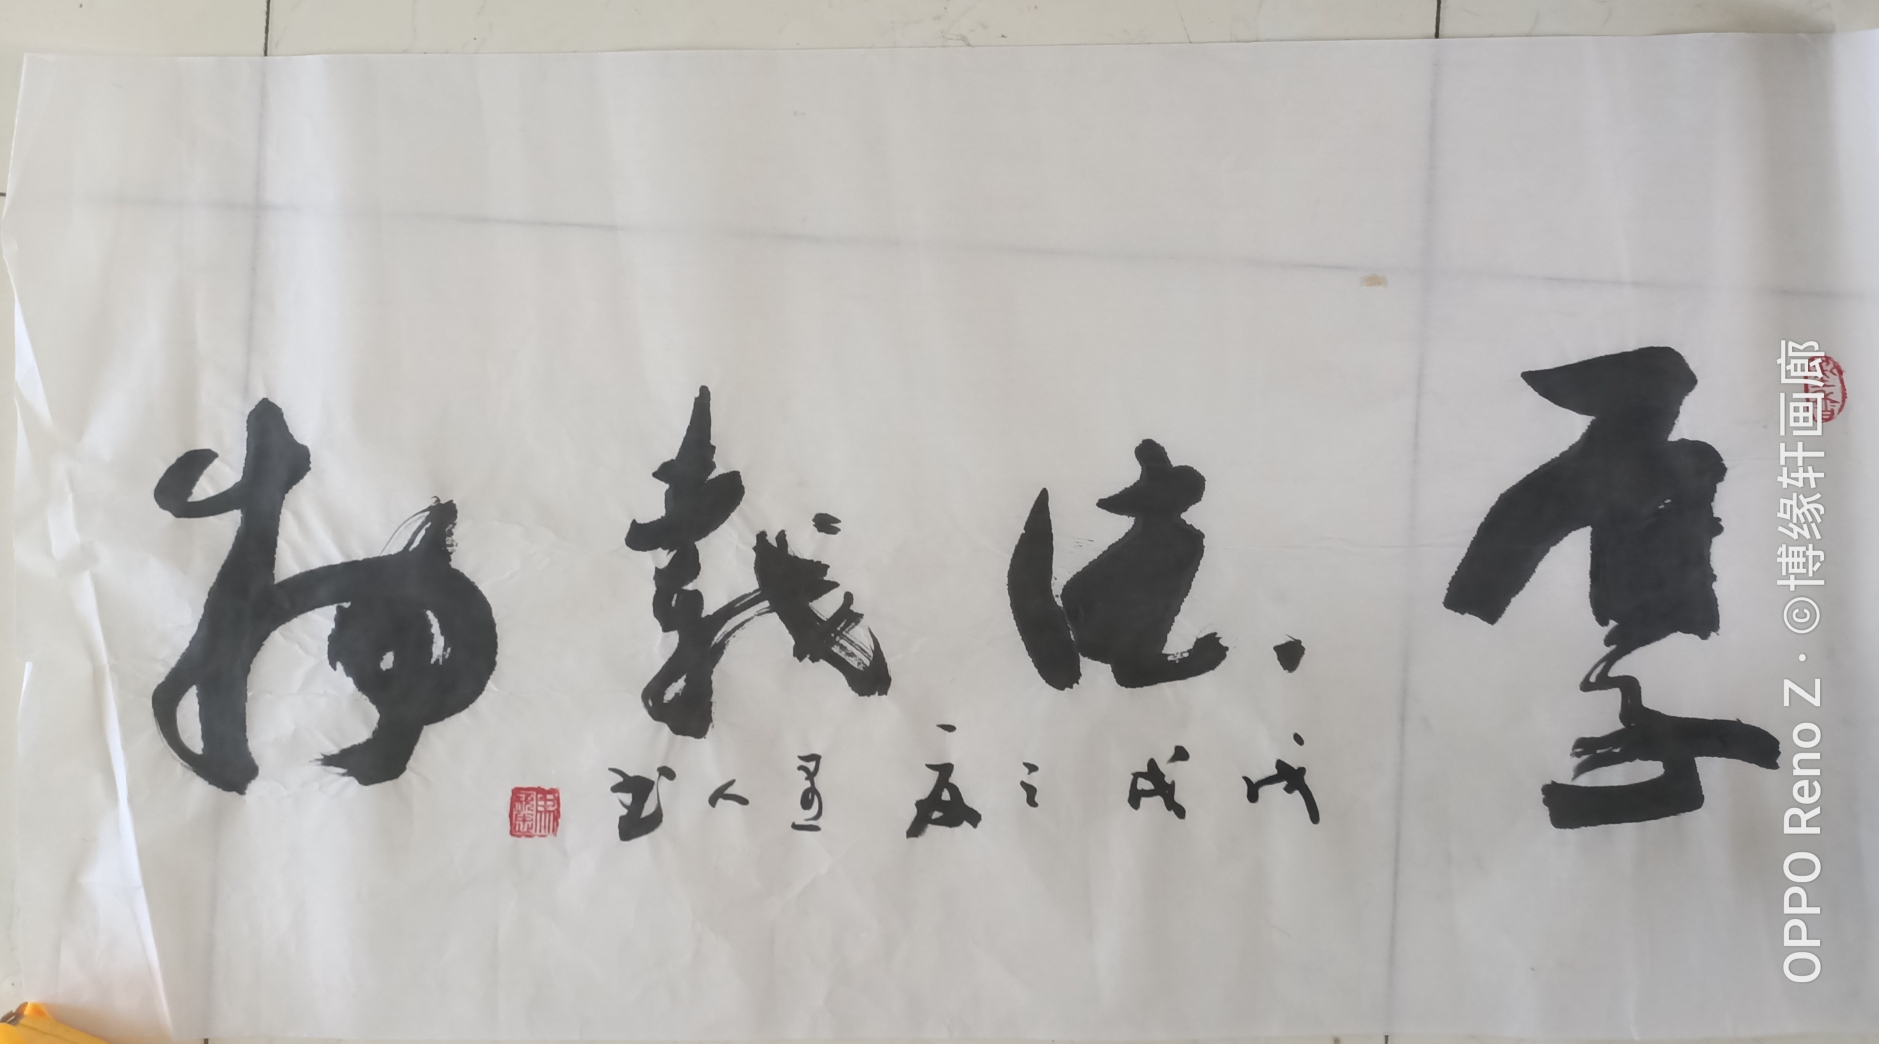 厚德载物
戊戌之夏
人书
OPPO Reno Z · ©博缘轩画廊